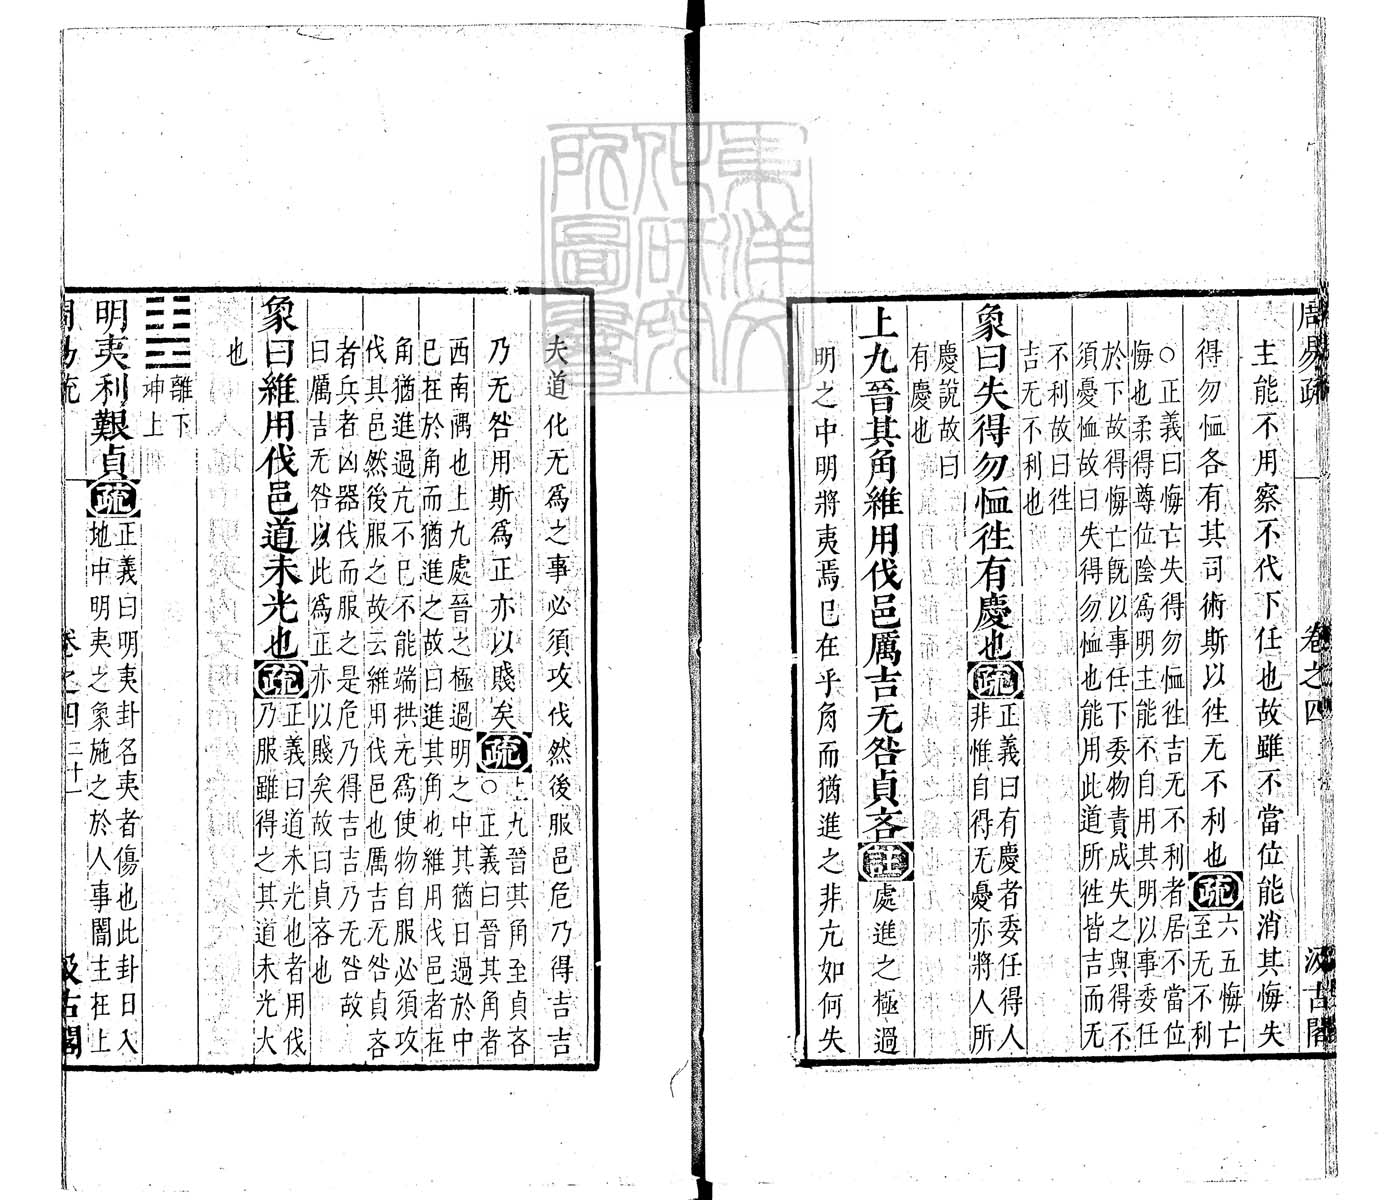 周易疏 卷之四 汲古閣
主能不用察不代下任也故雖不當位能消其悔失
得勿恤各有其司術斯以徃无不利也疏六五悔亡
至无不利
○正義曰悔亡失得勿恤徃吉无不利者居不當位
悔也柔得尊位陰爲明主能不自用其明以事委任
於下故得悔亡旣以事任下委物責成失之與得不
須憂恤故曰失得勿恤也能用此道所徃皆吉而无
不利故曰徃
吉无不利也
象曰失得勿恤徃有慶也疏正義曰有慶者委任得人
非惟自得无憂亦將人所
慶說故曰
有慶也
上九晉其角維用伐邑厲吉无咎貞吝註處進之極過
明之中明將夷焉巳在乎角而猶進之非亢如何失
夫道化无爲之事必須攻伐然後服邑危乃得吉吉
乃无咎用斯爲正亦以賤矣疏上九晉其角至貞吝
○正義曰晉其角者
西南隅也上九處晉之極過明之中其猶日過於中
巳在於角而猶進之故曰進其角也維用伐邑者在
角猶進過亢不巳不能端拱无爲使物自服必須攻
伐其邑然後服之故云維用伐邑也厲吉无咎貞吝
者兵者凶器伐而服之是危乃得吉吉乃无咎故
曰厲吉无咎以此爲正亦以賤矣故曰貞吝也
象曰維用伐邑道未光也疏正義曰道未光也者用伐
乃服雖得之其道未光大
也
離下
坤上
明夷利艱貞疏正義曰明夷卦名夷者傷也此卦日入
地中明夷之象施之於人事闇主在上
周易疏 卷之四 二十一 汲古閣